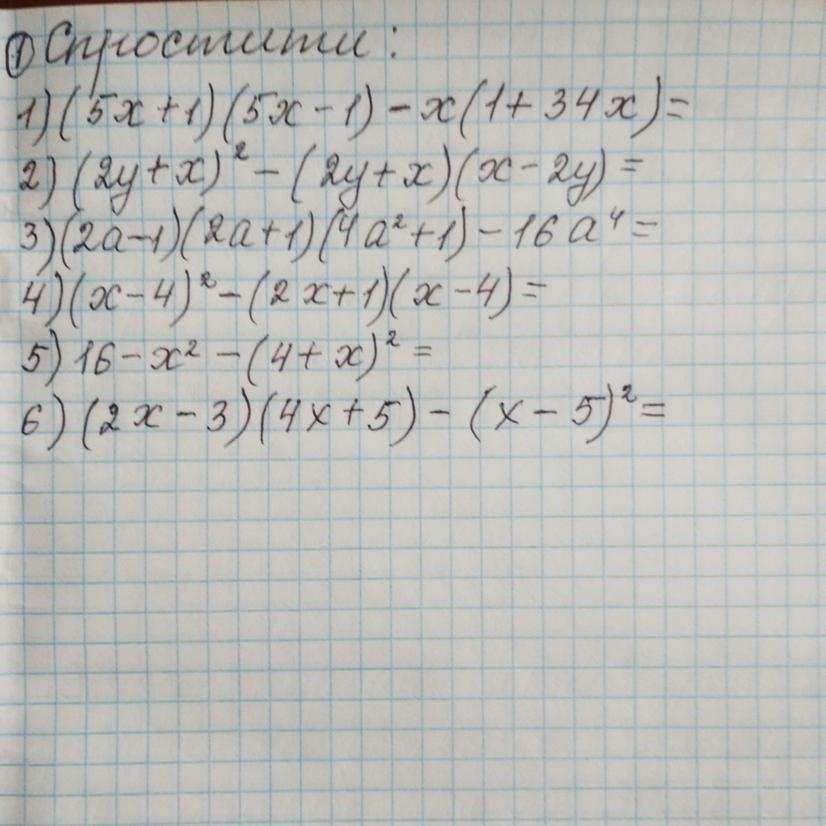 ① Спростити:
1) (5x+1)(5x-1)-x(1+34x)=
2) (2y+x)²-(2y+x)(x-2y)=
3) (2a-1)(2a+1)(4a²+1)-16a⁴=
4) (x-4)²-(2x+1)(x-4)=
5) 16-x²-(4+x)²=
6) (2x-3)(4x+5)-(x-5)²=